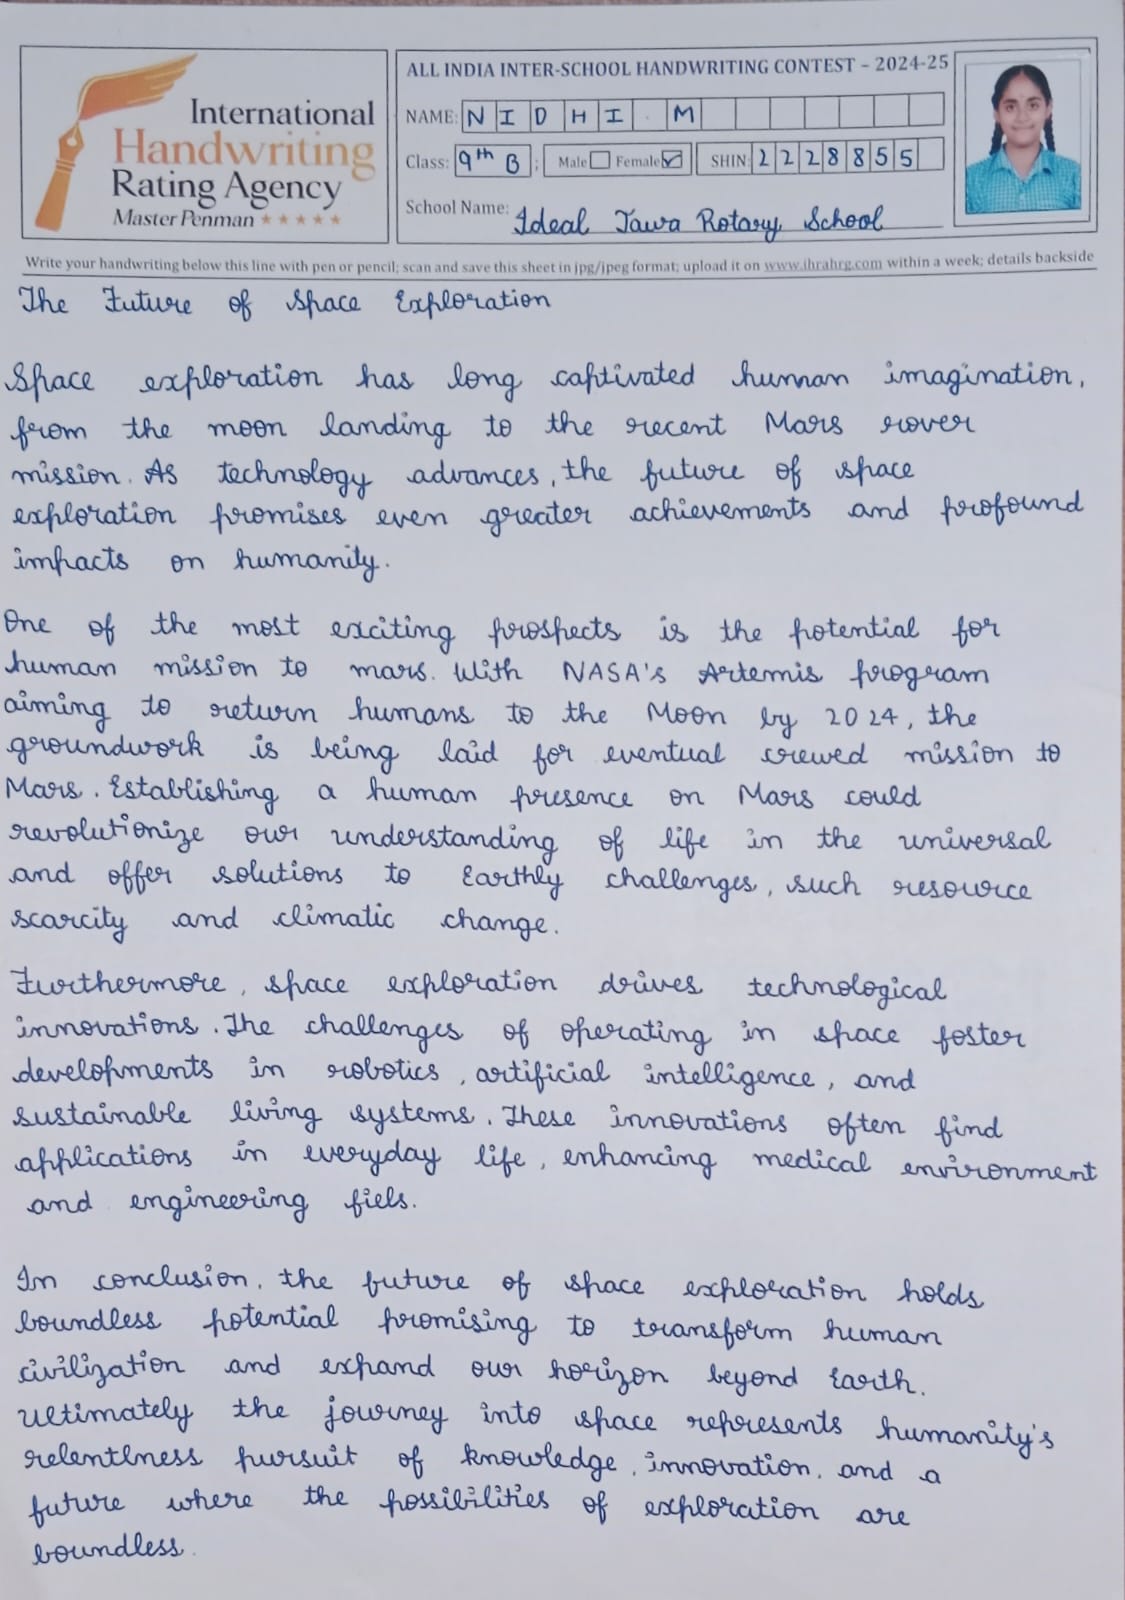 International
Handwriting
Rating Agency
Master Penman ★★★★★
ALL INDIA INTER-SCHOOL HANDWRITING CONTEST – 2024-25
NAME: NIDHI. M
Class: 9th B ; Male ☐ Female ☑ SHIN: 2228855
School Name: Ideal Jawa Rotary School
Write your handwriting below this line with pen or pencil; scan and save this sheet in jpg/jpeg format; upload it on www.ihrahrg.com within a week; details backside
The Future of Space Exploration
Space exploration has long captivated human imagination,
from the moon landing to the recent Mars rover
mission. As technology advances, the future of space
exploration promises even greater achievements and profound
impacts on humanity.
One of the most exciting prospects is the potential for
human mission to mars. With NASA's Artemis program
aiming to return humans to the Moon by 2024, the
groundwork is being laid for eventual crewed mission to
Mars. Establishing a human presence on Mars could
revolutionize our understanding of life in the universal
and offer solutions to Earthly challenges, such resource
scarcity and climatic change.
Furthermore, space exploration drives technological
innovations. The challenges of operating in space foster
developments in robotics, artificial intelligence, and
sustainable living systems. These innovations often find
applications in everyday life, enhancing medical environment
and engineering fiels.
In conclusion, the future of space exploration holds
boundless potential promising to transform human
civilization and expand our horizon beyond Earth.
Ultimately the journey into space represents humanity's
relentlness pursuit of knowledge, innovation, and a
future where the possibilities of exploration are
boundless.